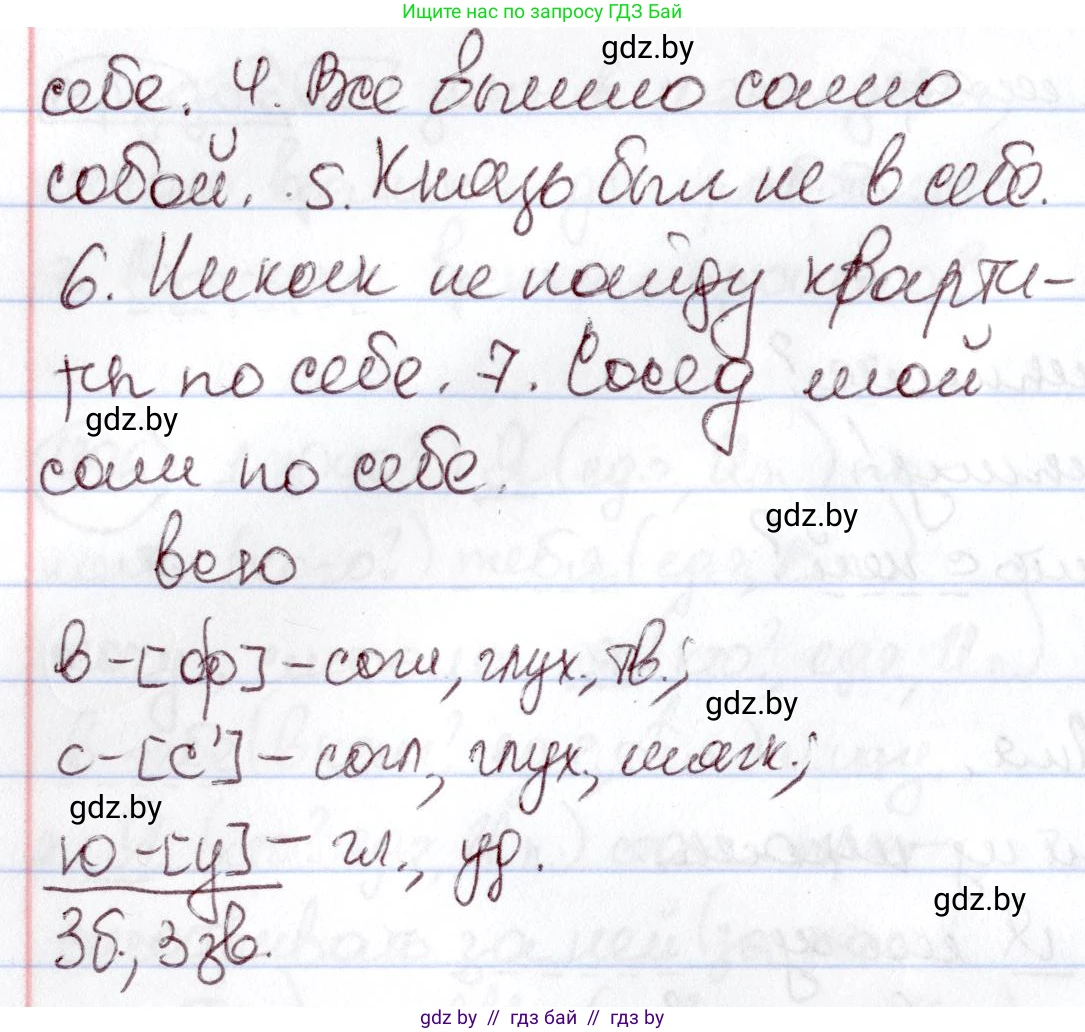 Ищите нас по запросу ГДЗ Бай
gdz.by
себе. 4. Все вышло само
собой. 5. Князь был не в себе.
6. Никак не найду кварти-
ры по себе. 7. Сосед мой
gdz.by
сам по себе.
gdz.by
всю
в - [ф] - согл, глух., тв.;
gdz.by
с - [с'] - согл, глух, мягк.;
gdz.by
ю - [у] - гл., уд.
gdz.by
3б., 3 зв.
gdz.by // гдз бай // гдз by